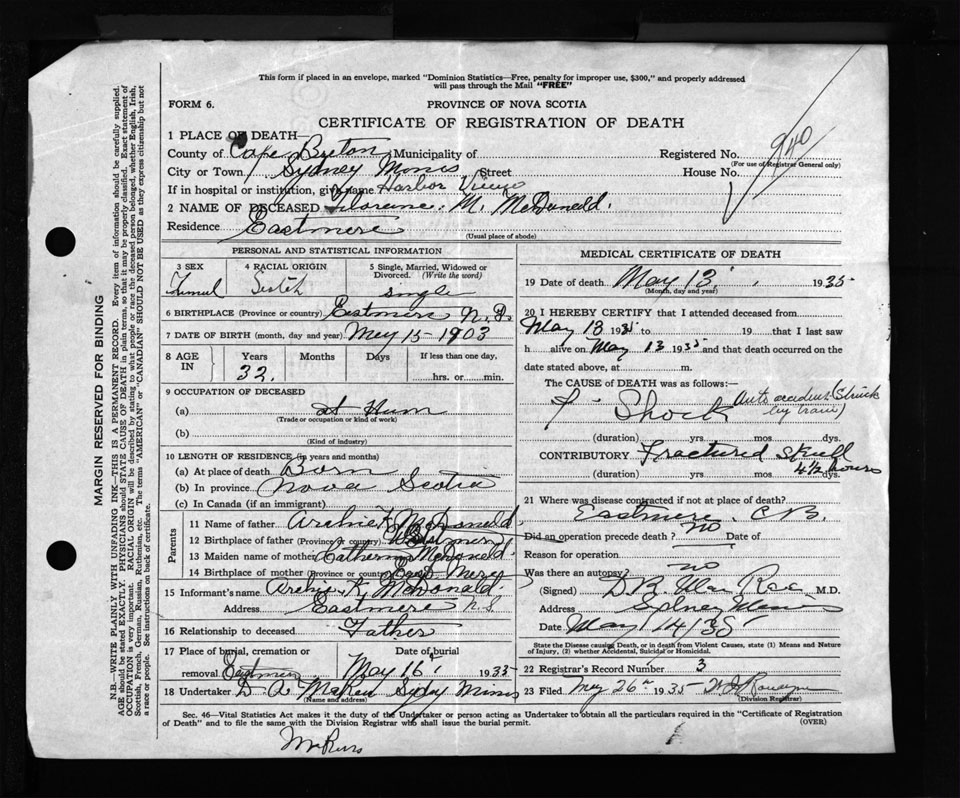 This form if placed in an envelope, marked "Dominion Statistics—Free, penalty for improper use, $300," and properly addressed
will pass through the Mail "FREE"
FORM 6.
PROVINCE OF NOVA SCOTIA
CERTIFICATE OF REGISTRATION OF DEATH
940
1 PLACE OF DEATH—
County of Cape Breton Municipality of
Registered No.
(For use of Registrar General only)
City or Town Sydney Mines Street
House No.
If in hospital or institution, give name Harbor View
2 NAME OF DECEASED Florence M. McDonald.
Residence Eastmere
(Usual place of abode)
PERSONAL AND STATISTICAL INFORMATION
3 SEX
4 RACIAL ORIGIN Scotch
5 Single, Married, Widowed or Divorced. (Write the word)
single
6 BIRTHPLACE (Province or country) Eastmere N.S.
7 DATE OF BIRTH (month, day and year) May 15-1903
8 AGE IN
Years Months Days If less than one day,
32. hrs. or min.
9 OCCUPATION OF DECEASED
(a) at Hum
(Trade or occupation or kind of work)
(b)
(Kind of industry)
10 LENGTH OF RESIDENCE (in years and months)
(a) At place of death Born
(b) In province Nova Scotia
(c) In Canada (if an immigrant)
Parents
11 Name of father Archie K McDonald.
12 Birthplace of father (Province or country)
13 Maiden name of mother Catherine McDonald
14 Birthplace of mother (Province or country) East Mere
15 Informant's name Archie K. McDonald.
Address Eastmere N.S
16 Relationship to deceased Father
17 Place of burial, cremation or removal Eastmere
Date of burial
May 16 1935
18 Undertaker D A Sydy Mines
(Name and address)
MEDICAL CERTIFICATE OF DEATH
19 Date of death May 13, 1935
(Month, day and year)
20 I HEREBY CERTIFY that I attended deceased from
May 13 1935 to 19 that I last saw
h alive on May 13 1935 and that death occurred on the
date stated above, at m.
The CAUSE OF DEATH was as follows:
Shock Auto accident (Struck
by train)
(duration) yrs. mos. dys.
CONTRIBUTORY Fractured skull
(duration) yrs. mos. dys. 4½ hours
21 Where was disease contracted if not at place of death?
Eastmere C.B.
Did an operation precede death? no Date of
Reason for operation
Was there an autopsy? no
(Signed) D.B. Rae M.D.
Address Sydney Mines
Date May 14/35
State the Disease causing Death, or in death from Violent Causes, state (1) Means and Nature
of Injury, (2) whether Accidental, Suicidal or Homicidal.
22 Registrar's Record Number 3
23 Filed May 26th 1935
(Division Registrar)
Sec. 46—Vital Statistics Act makes it the duty of the Undertaker or person acting as Undertaker to obtain all the particulars required in the "Certificate of Registration
of Death" and to file the same with the Division Registrar who shall issue the burial permit.
(OVER)
MARGIN RESERVED FOR BINDING
N.B.—WRITE PLAINLY WITH UNFADING INK—THIS IS A PERMANENT RECORD. Every item of information should be carefully supplied.
AGE should be stated EXACTLY. PHYSICIANS should STATE CAUSE OF DEATH in plain terms, so that it may be properly classified. Exact statement of
OCCUPATION is very important. RACIAL ORIGIN will be described by stating to what people or race the deceased person belonged, whether English, Irish,
Scottish, French, German, Russian, Ruthenian, etc. The terms "AMERICAN" or "CANADIAN" SHOULD NOT BE USED as they express citizenship but not
a race or people. See instructions on back of certificate.